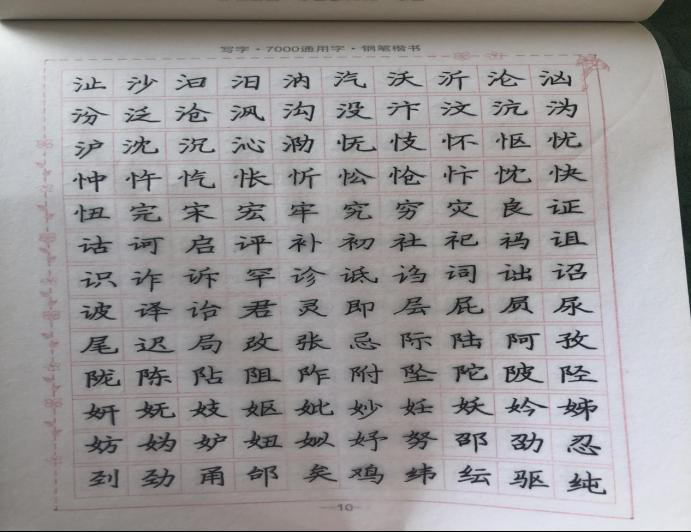 写字·7000通用字·钢笔楷书
沚沙汩汨汭汽沃沂沦汹
汾泛沧沨沟没汴汶沆沩
沪沈沉沁泐怃忮怀怄忧
忡忤忾怅忻忪怆忭忱快
忸完宋宏牢究穷灾良证
诂诃启评补初社祀祃诅
识诈诉罕诊诋诌词诎诏
诐译诒君灵即层屁屃尿
尾迟局改张忌际陆阿孜
陇陈阽阻阼附坠陀陂陉
妍妩妓妪妣妙妊妖妗姊
妨妫妒妞姒妤努邵劭忍
刭劲甬邰矣鸡纬纭驱纯
10